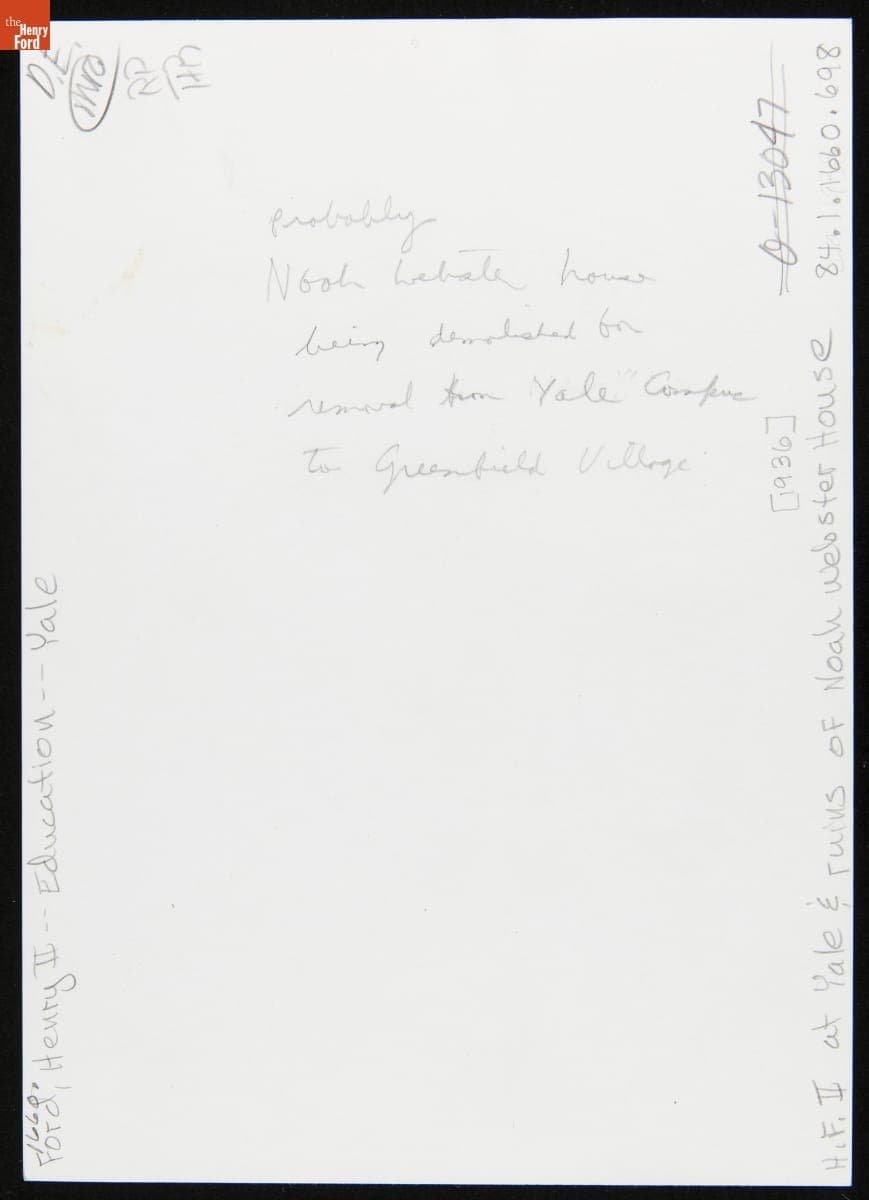 the
Henry
Ford
D.E.
probably
Noah Webster house
being demolished for
removal from "Yale" Campus
to Greenfield Village
0-13047
84.1.1660.698
[1936]
H.F. II at Yale & ruins of Noah Webster House
1660.
Ford, Henry II -- Education -- Yale